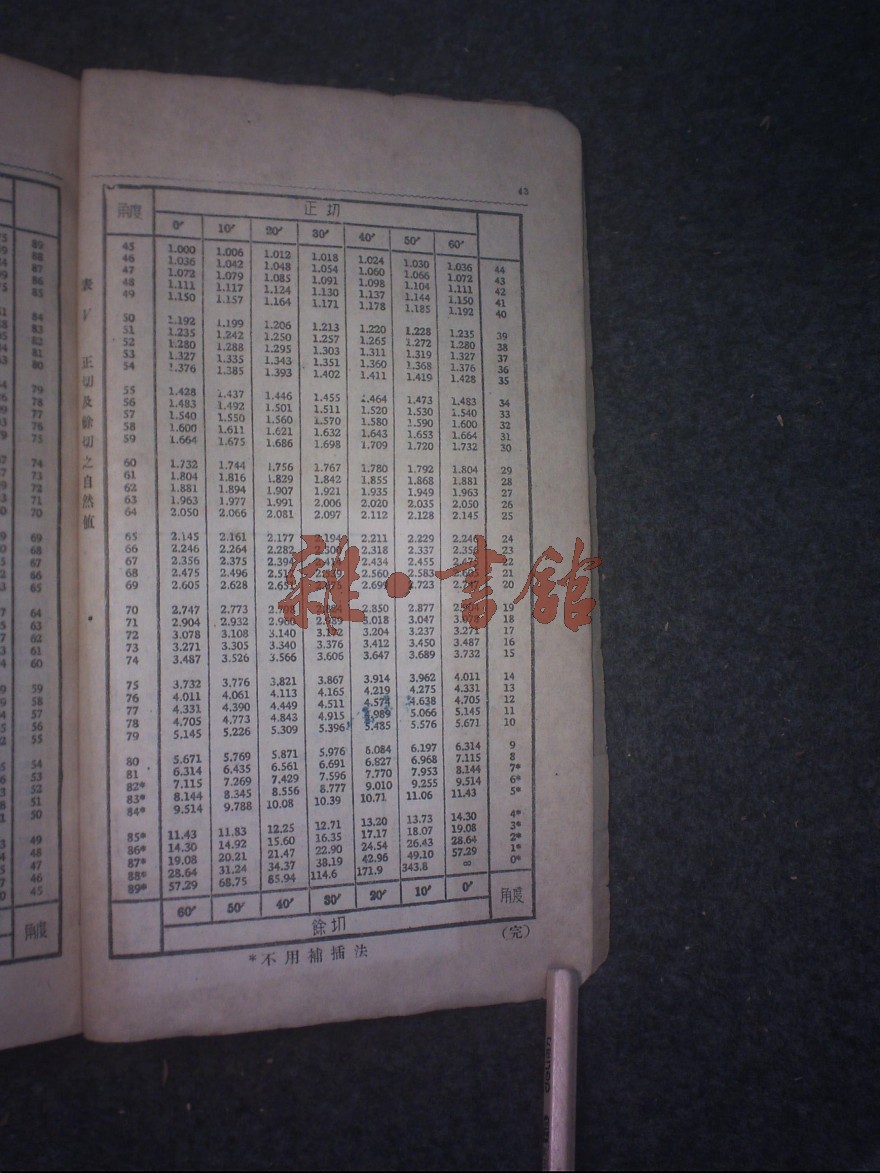 43
角度 正切
0′ 10′ 20′ 30′ 40′ 50′ 60′
45 1.000 1.006 1.012 1.018 1.024 1.030 1.036 44
46 1.036 1.042 1.048 1.054 1.060 1.066 1.072 43
47 1.072 1.079 1.085 1.091 1.098 1.104 1.111 42
48 1.111 1.117 1.124 1.130 1.137 1.144 1.150 41
49 1.150 1.157 1.164 1.171 1.178 1.185 1.192 40
50 1.192 1.199 1.206 1.213 1.220 1.228 1.235 39
51 1.235 1.242 1.250 1.257 1.265 1.272 1.280 38
52 1.280 1.288 1.295 1.303 1.311 1.319 1.327 37
53 1.327 1.335 1.343 1.351 1.360 1.368 1.376 36
54 1.376 1.385 1.393 1.402 1.411 1.419 1.428 35
55 1.428 1.437 1.446 1.455 1.464 1.473 1.483 34
56 1.483 1.492 1.501 1.511 1.520 1.530 1.540 33
57 1.540 1.550 1.560 1.570 1.580 1.590 1.600 32
58 1.600 1.611 1.621 1.632 1.643 1.653 1.664 31
59 1.664 1.675 1.686 1.698 1.709 1.720 1.732 30
60 1.732 1.744 1.756 1.767 1.780 1.792 1.804 29
61 1.804 1.816 1.829 1.842 1.855 1.868 1.881 28
62 1.881 1.894 1.907 1.921 1.935 1.949 1.963 27
63 1.963 1.977 1.991 2.006 2.020 2.035 2.050 26
64 2.050 2.066 2.081 2.097 2.112 2.128 2.145 25
65 2.145 2.161 2.177 2.194 2.211 2.229 2.246 24
66 2.246 2.264 2.282 2.300 2.318 2.337 2.356 23
67 2.356 2.375 2.394 2.434 2.455 2.475 22
68 2.475 2.496 2.560 2.583 21
69 2.605 2.628 2.651 2.699 2.723 20
70 2.747 2.773 2.850 2.877 2.904 19
71 2.904 2.932 2.960 2.989 3.018 3.047 3.078 18
72 3.078 3.108 3.140 3.172 3.204 3.237 3.271 17
73 3.271 3.305 3.340 3.376 3.412 3.450 3.487 16
74 3.487 3.526 3.566 3.606 3.647 3.689 3.732 15
75 3.732 3.776 3.821 3.867 3.914 3.962 4.011 14
76 4.011 4.061 4.113 4.165 4.219 4.275 4.331 13
77 4.331 4.390 4.449 4.511 4.574 4.638 4.705 12
78 4.705 4.773 4.843 4.915 4.989 5.066 5.145 11
79 5.145 5.226 5.309 5.396 5.485 5.576 5.671 10
80 5.671 5.769 5.871 5.976 6.084 6.197 6.314 9
81 6.314 6.435 6.561 6.691 6.827 6.968 7.115 8
82* 7.115 7.269 7.429 7.596 7.770 7.953 8.144 7*
83* 8.144 8.345 8.556 8.777 9.010 9.255 9.514 6*
84* 9.514 9.788 10.08 10.39 10.71 11.06 11.43 5*
85* 11.43 11.83 12.25 12.71 13.20 13.73 14.30 4*
86* 14.30 14.92 15.60 16.35 17.17 18.07 19.08 3*
87* 19.08 20.21 21.47 22.90 24.54 26.43 28.64 2*
88* 28.64 31.24 34.37 38.19 42.96 49.10 57.29 1*
89* 57.29 68.75 85.94 114.6 171.9 343.8 ∞ 0*
60′ 50′ 40′ 30′ 20′ 10′ 0′ 角度
餘切
(完)
*不用補插法
表 V 正切及餘切之自然值
89
88
87
86
85
84
83
82
81
80
79
78
77
76
75
74
73
72
71
70
69
68
67
66
65
64
63
62
61
60
59
58
57
56
55
54
53
52
51
50
49
48
47
46
45
角度
雜·書館